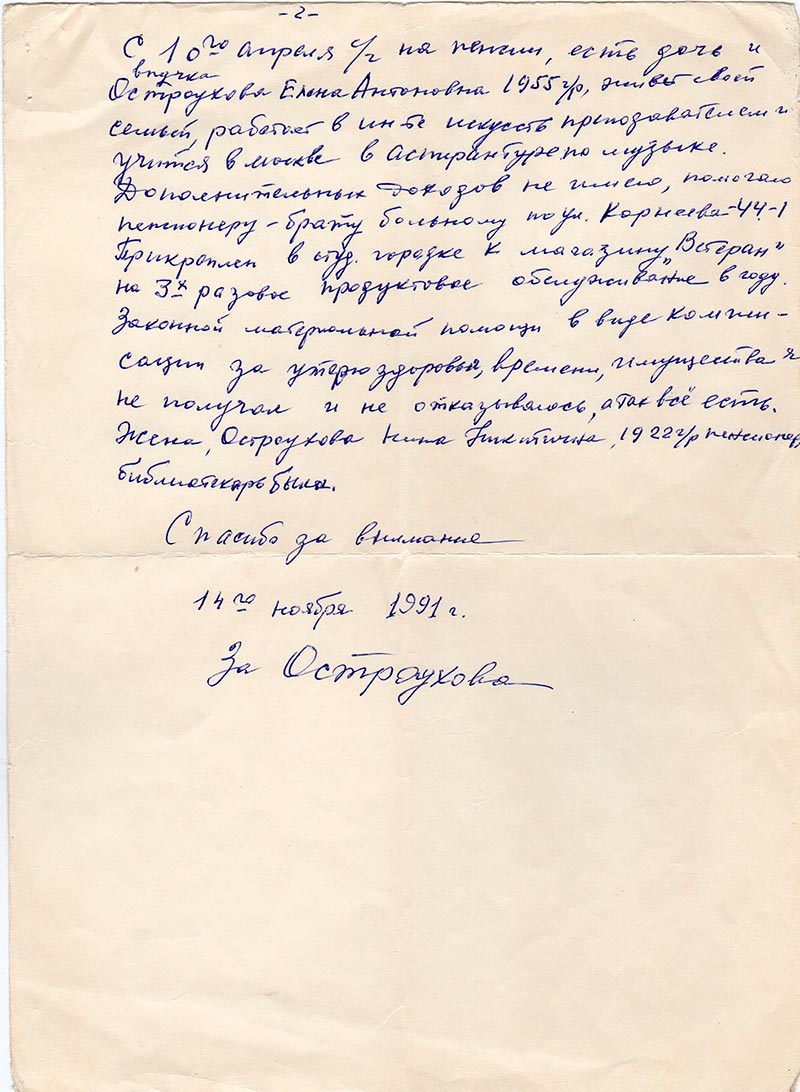 -2-
С 10го апреля с/г на пенсии, есть дочь и
внучка
Остроухова Елена Антоновна 1955 г/р, живет своей
семьей, работает в ин-те искусств преподавателем и
учится в москве в аспирантуре по музыке.
Дополнительных доходов не имею, помогаю
пенсионеру - брату больному по ул. Корнеева-44-1
Прикреплен в студ. городке к магазину „Ветеран"
на 3х разовое продуктовое обслуживание в году.
Законной материальной помощи в виде компен-
сации за утерю здоровья, времени, имущества я
не получал и не отказывалось, а так всё есть.
Жена, Остроухова Нина Никитична, 1922 г/р пенсионер,
библиотекарь была.
Спасибо за внимание
14го ноября 1991 г.
За Остроухова